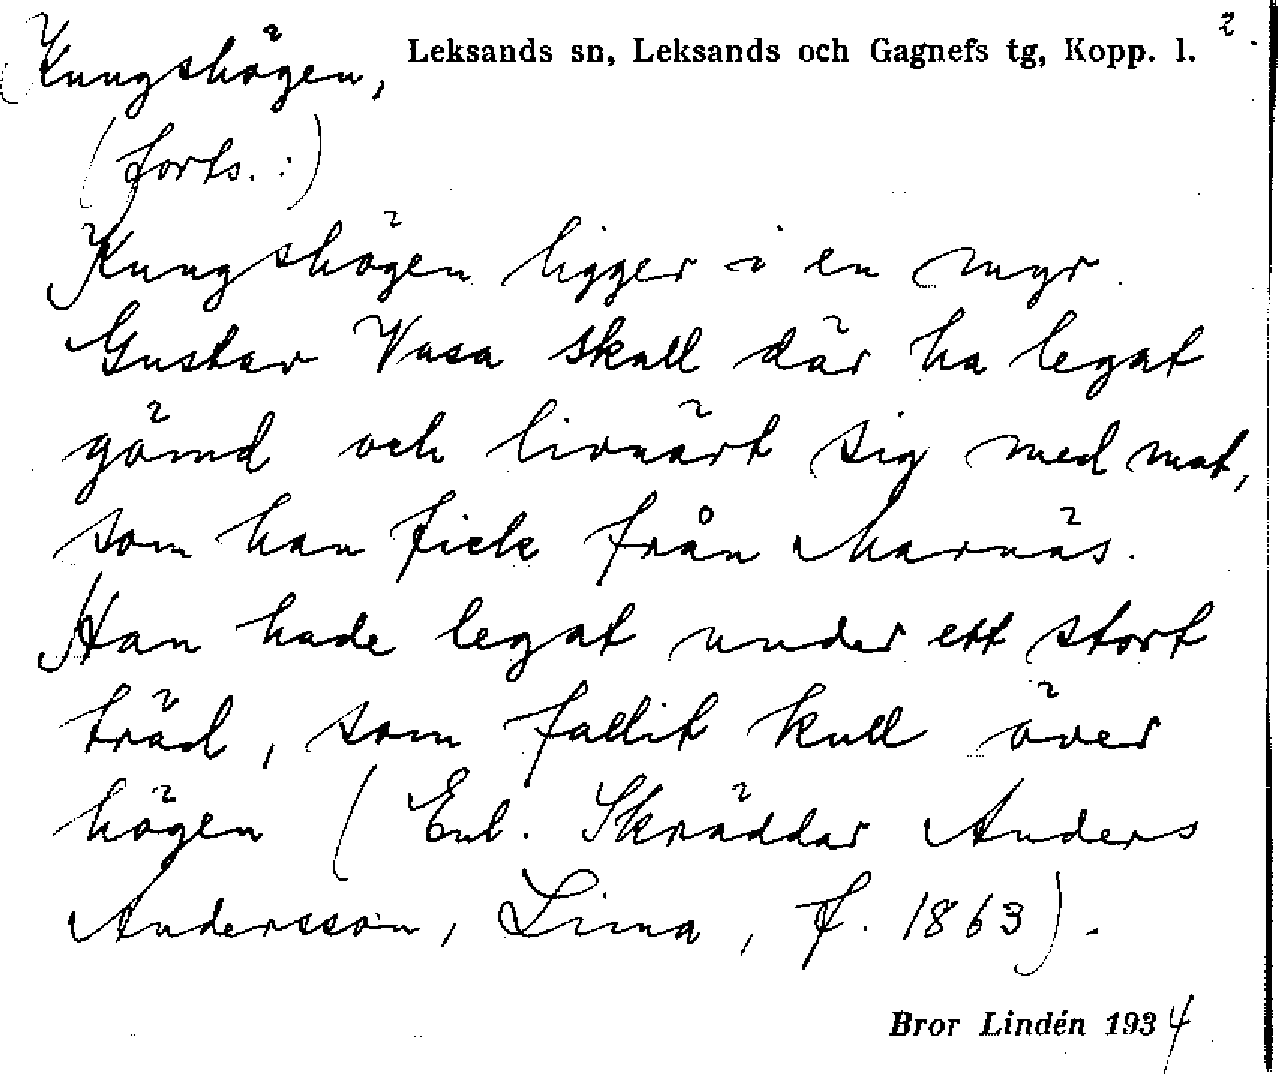 Kungshögen, Leksands sn, Leksands och Gagnefs tg, Kopp. l. 2.
(forts.:)
Kungshögen ligger i en myr.
Gustav Vasa skall där ha legat
gömd och livnärt sig med mat,
som han fick från Marnäs.
Han hade legat under ett stort
träd, som fallit kull över
högen (Enl. Skräddar Anders
Andersson, Lima, f. 1863).
Bror Lindén 1934